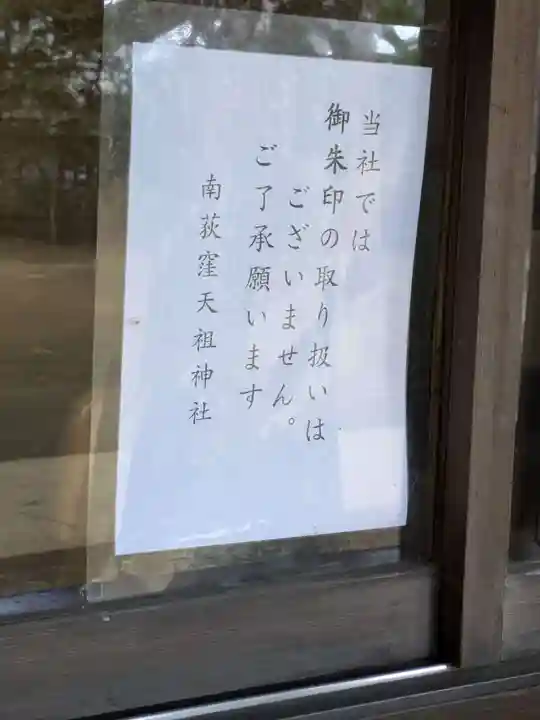 当社では
御朱印の取り扱いは
ございません。
ご了承願います
南荻窪天祖神社